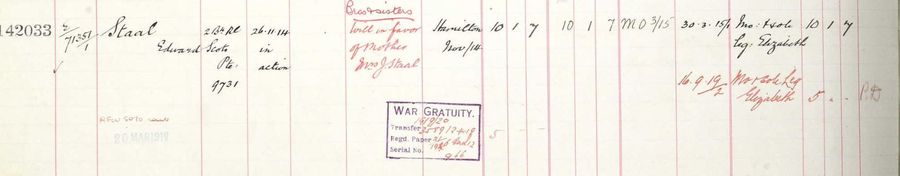 Bros & sisters
142033 2/71351/1 Staal 2 Bn Rl 26.11.14 Will in favor Hamilton 10 1 7 10 1 7 MO 3/15 30.3.15 Mo: & sole 10 1 7
Edward Scots in of Mother Nov/14 Leg: Elizabeth
Pte: action Mrs J. Staal
9731
16.9.19 Mo & sole Leg
Elizabeth 5 " "
20 MAR 1919
WAR GRATUITY.
Transfer
Regd. Paper
Serial No.
5